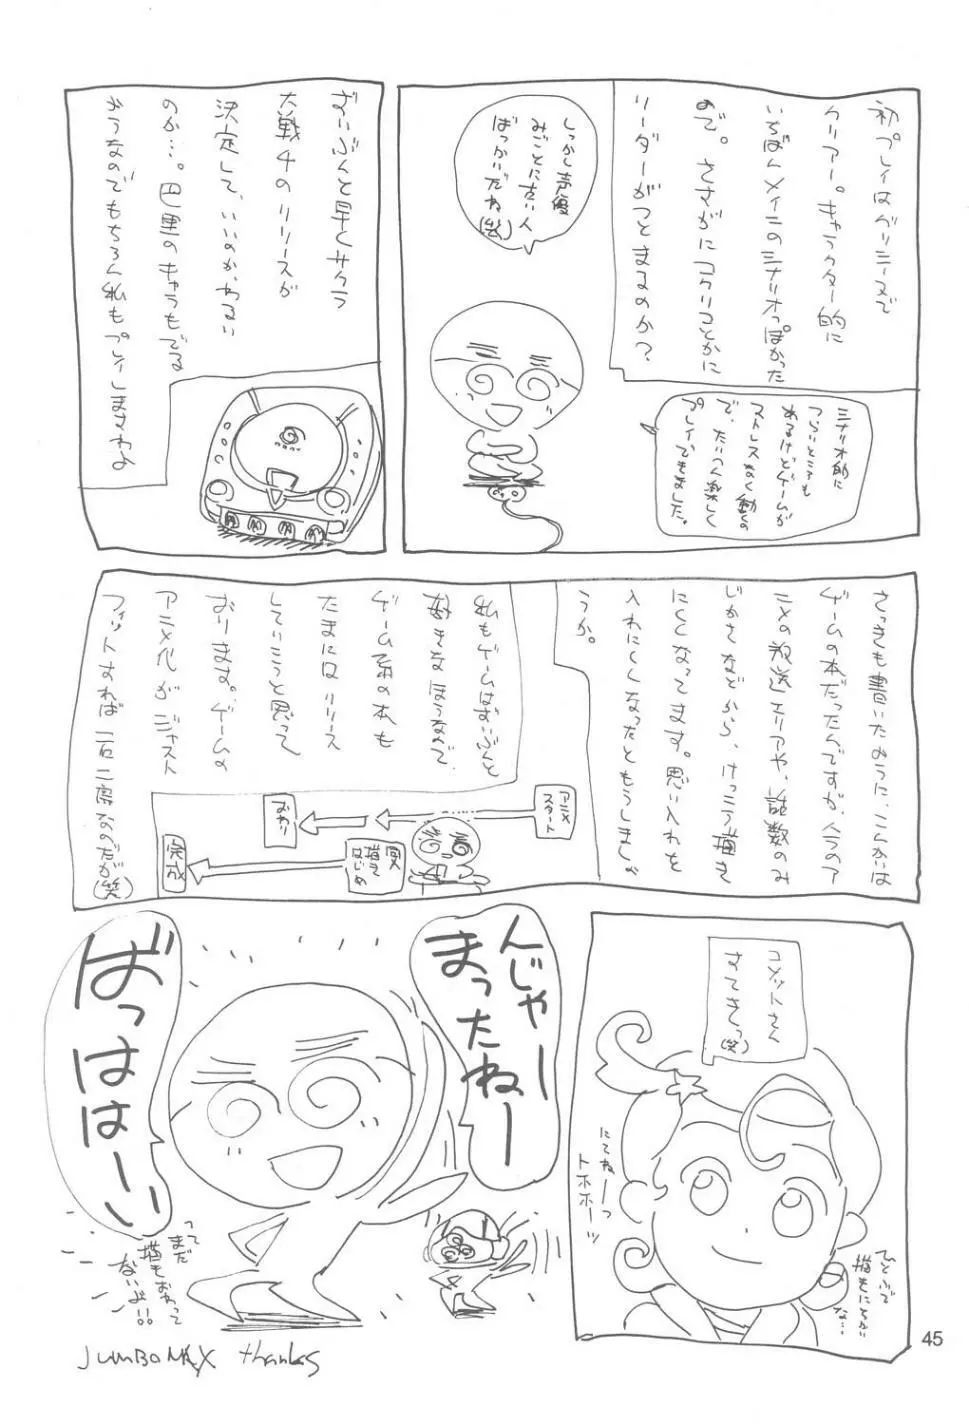 初プレイはグリシーヌで
クリアー。キャラクター的に
いちばんメインのシナリオっぽかった
ので。さすがにコクリコとかに
リーダーがつとまるのか?
しっかし声優
みごとに古い人
ばっかいだね(笑)
シナリオ的に
つらいところも
あるけどゲームが
ストレスなく動くの
で、たいへん楽しく
プレイできました。
ずいぶんと早くサクラ
大戦4のリリースが
決定して、いいのか、わるい
のか…。巴里のキャラもでる
ようなのでもちろん私もプレイしますわよ
さっきも書いたように、こんかいは
ゲームの本だったんですが、今のア
ニメの放送エリアや、話数のみ
じかさなどから、けっこう描き
にくくなってます。思い入れを
入れにくくなったともうしましょ
うか。
私もゲームはずいぶんと
好きなほうなんで、
ゲーム系の本も
たまにはリリース
していこうと思って
おります。ゲームの
アニメ化がジャスト
フィットすれば一石二鳥なのだが(笑)
アニメ
スタート
おわり
描き
はじめ
完成
コメットさん
すてきっ(笑)
にてねーっ
トホホーッ
ひとふで
描きにちかい
な…
んじゃー
まったねー
ばっははーい
って
まだ
描きおわって
ないよ!!
JUMBOMAX thanks
45